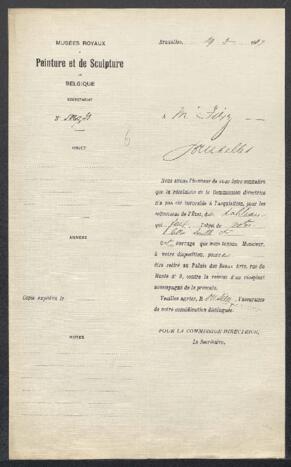 MUSÉES ROYAUX
DE
Peinture et de Sculpture
DE
BELGIQUE
SECRÉTARIAT
N°
OBJET
ANNEXE
Copie expédiée le
NOTES
Bruxelles, le 19
À M
Bruxelles
Nous avons l'honneur de vous faire connaître
que la résolution de la Commission directrice
n'a pas été favorable à l'acquisition, pour les
collections de l'État, du tableau
qui fait l'objet de votre
lettre
cet ouvrage que nous tenons, Monsieur,
à votre disposition, pourra
être retiré au Palais des Beaux Arts, rue du
Musée n° 9, contre la remise d'un récépissé
accompagné de la présente.
Veuillez agréer, M l'assurance
de notre considération distinguée.
POUR LA COMMISSION DIRECTRICE,
Le Secrétaire,